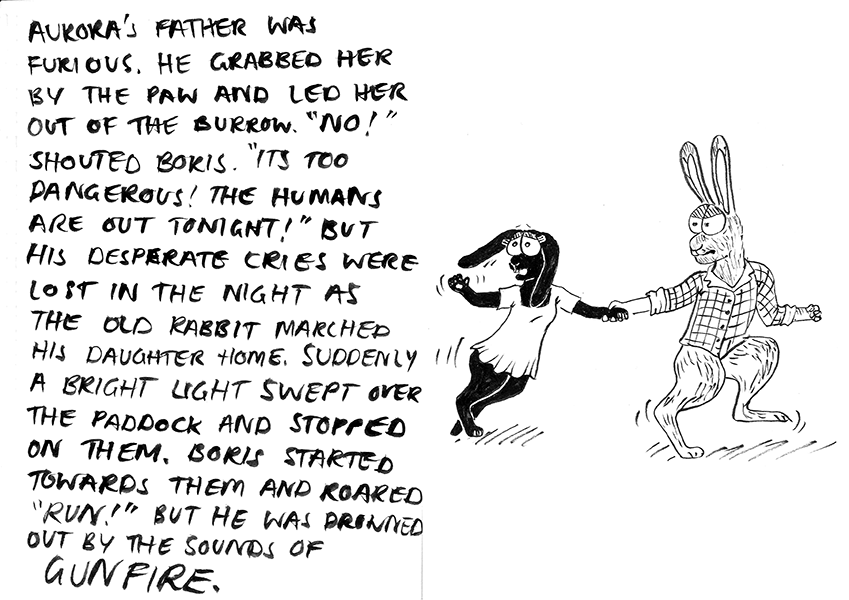 AURORA'S FATHER WAS
FURIOUS. HE GRABBED HER
BY THE PAW AND LED HER
OUT OF THE BURROW. "NO!"
SHOUTED BORIS. "ITS TOO
DANGEROUS! THE HUMANS
ARE OUT TONIGHT!" BUT
HIS DESPERATE CRIES WERE
LOST IN THE NIGHT AS
THE OLD RABBIT MARCHED
HIS DAUGHTER HOME. SUDDENLY
A BRIGHT LIGHT SWEPT OVER
THE PADDOCK AND STOPPED
ON THEM. BORIS STARTED
TOWARDS THEM AND ROARED
"RUN!" BUT HE WAS DROWNED
OUT BY THE SOUNDS OF
GUNFIRE.